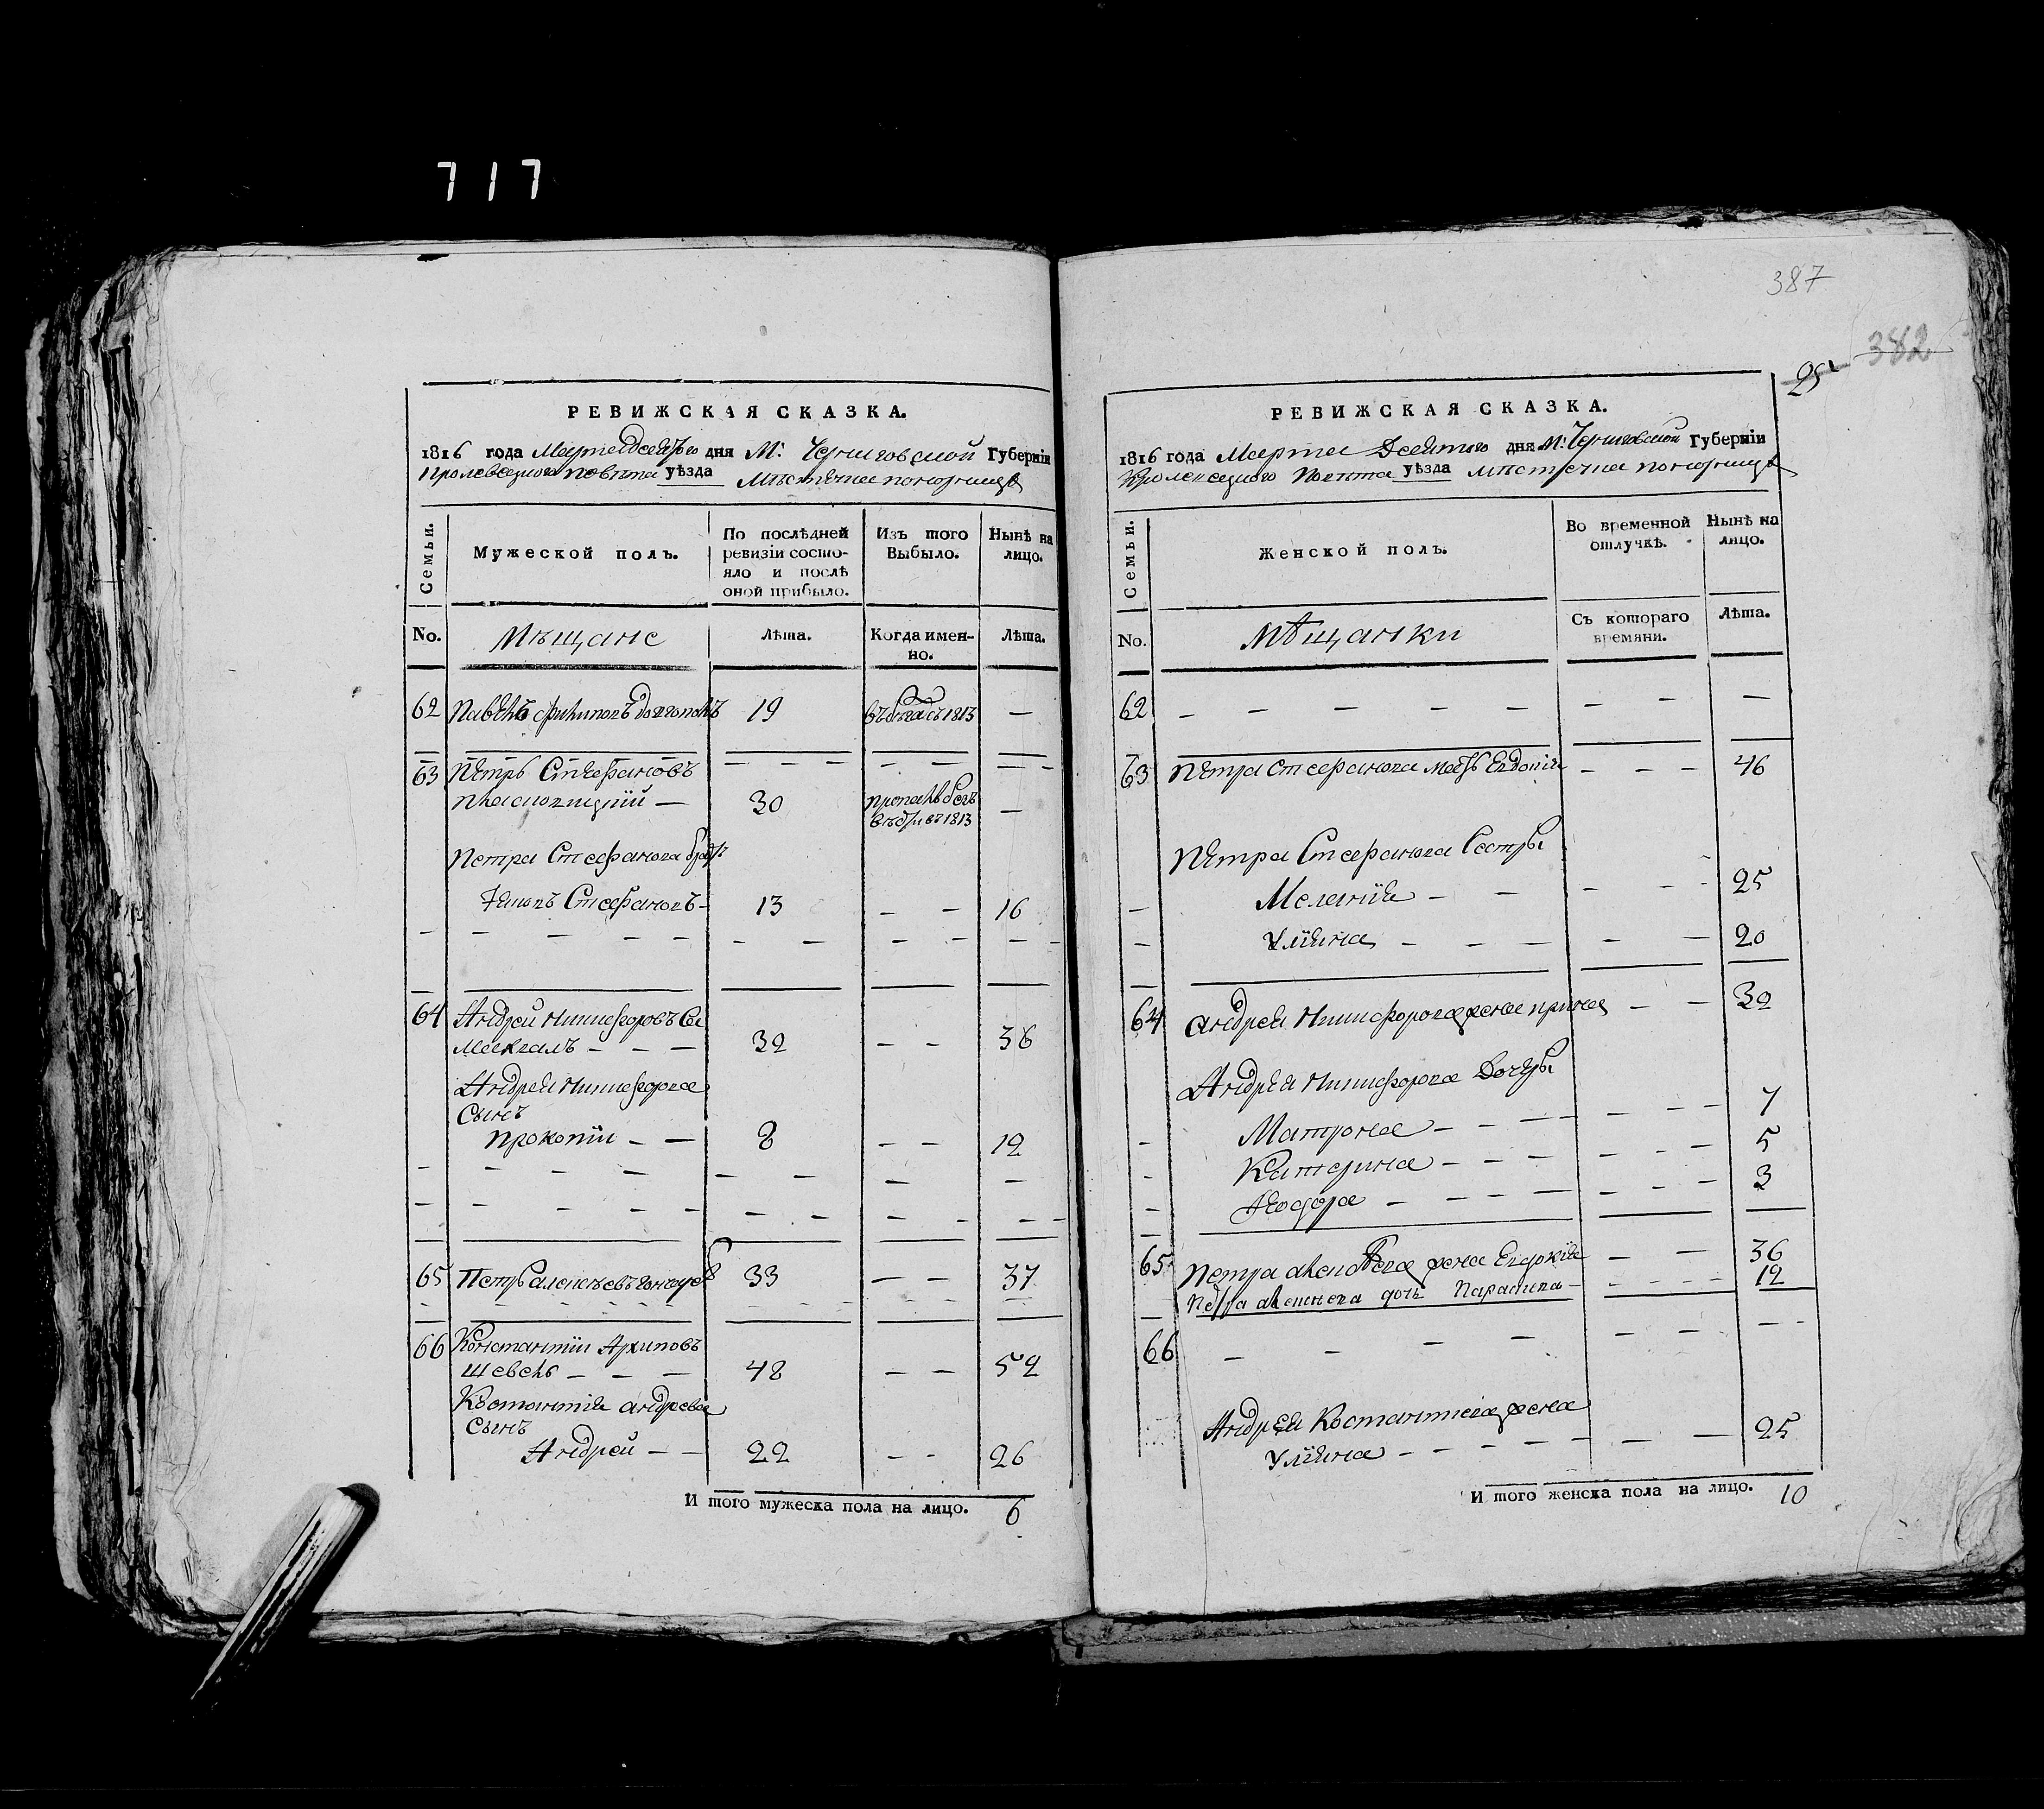 717
РЕВИЖСКАЯ СКАЗКА.
1816 года Марта десятого дня М: Черниговской Губерніи
Кролевецкого повѣта уѣзда Мѣстечка понорницѣ
Семьи.
Мужеской полъ.
По послѣдней ревизіи состояло и послѣ оной прибыло.
Изъ того Выбыло.
Нынѣ на лицо.
No.
Мѣщане
Лѣта.
Когда именно.
Лѣта.
62 Павелъ филиповъ 19 1813 —
63 Петръ Стефановъ
30 1813 —
Петра Стефанова братъ
Стефановъ 13 — — 16
64 Андрей Никифоровъ
— — — 32 — — 36
Андрея Никифорова
Сынъ
Прокопіи — — 8 — — 12
65 Петръ алексѣевъ 33 — — 37
66 Константіи Архиповъ
Шевель — — — 48 — — 52
Костантіа андреева
сынъ
Андрей — — 22 — — 26
И того мужеска пола на лицо. 6
387
382
25
РЕВИЖСКАЯ СКАЗКА.
1816 года Марта Десятого дня М: Черниговской Губерніи
Кролевецкого Повѣта уѣзда мѣстечка понорницѣ
Семьи.
Женской полъ.
Во временной отлучкѣ.
Нынѣ на лицо.
No.
Мѣщанки
Съ котораго времяни.
Лѣта.
62 — — — — — — — —
63 Петра Стефанова мать Евдокіи — — — 46
Петра Стефанова Сестры
Меланія — — — — - 25
Уліяна — — — — — 20
64 андрея Никифорова жена ирина — — 32
Андрея Никифорова Дочеры
Матрона — — — — — — 7
Катерина — — — — — — 5
Феодора — — — — — — 3
65 Петра алексѣева жена Евдокія — — 36
Петра алексѣева дочь Параска — 12
66 — — — — — — — —
Андрея Костантиева жена
Уліяна — — — — — — — 25
И того женска пола на лицо. 10